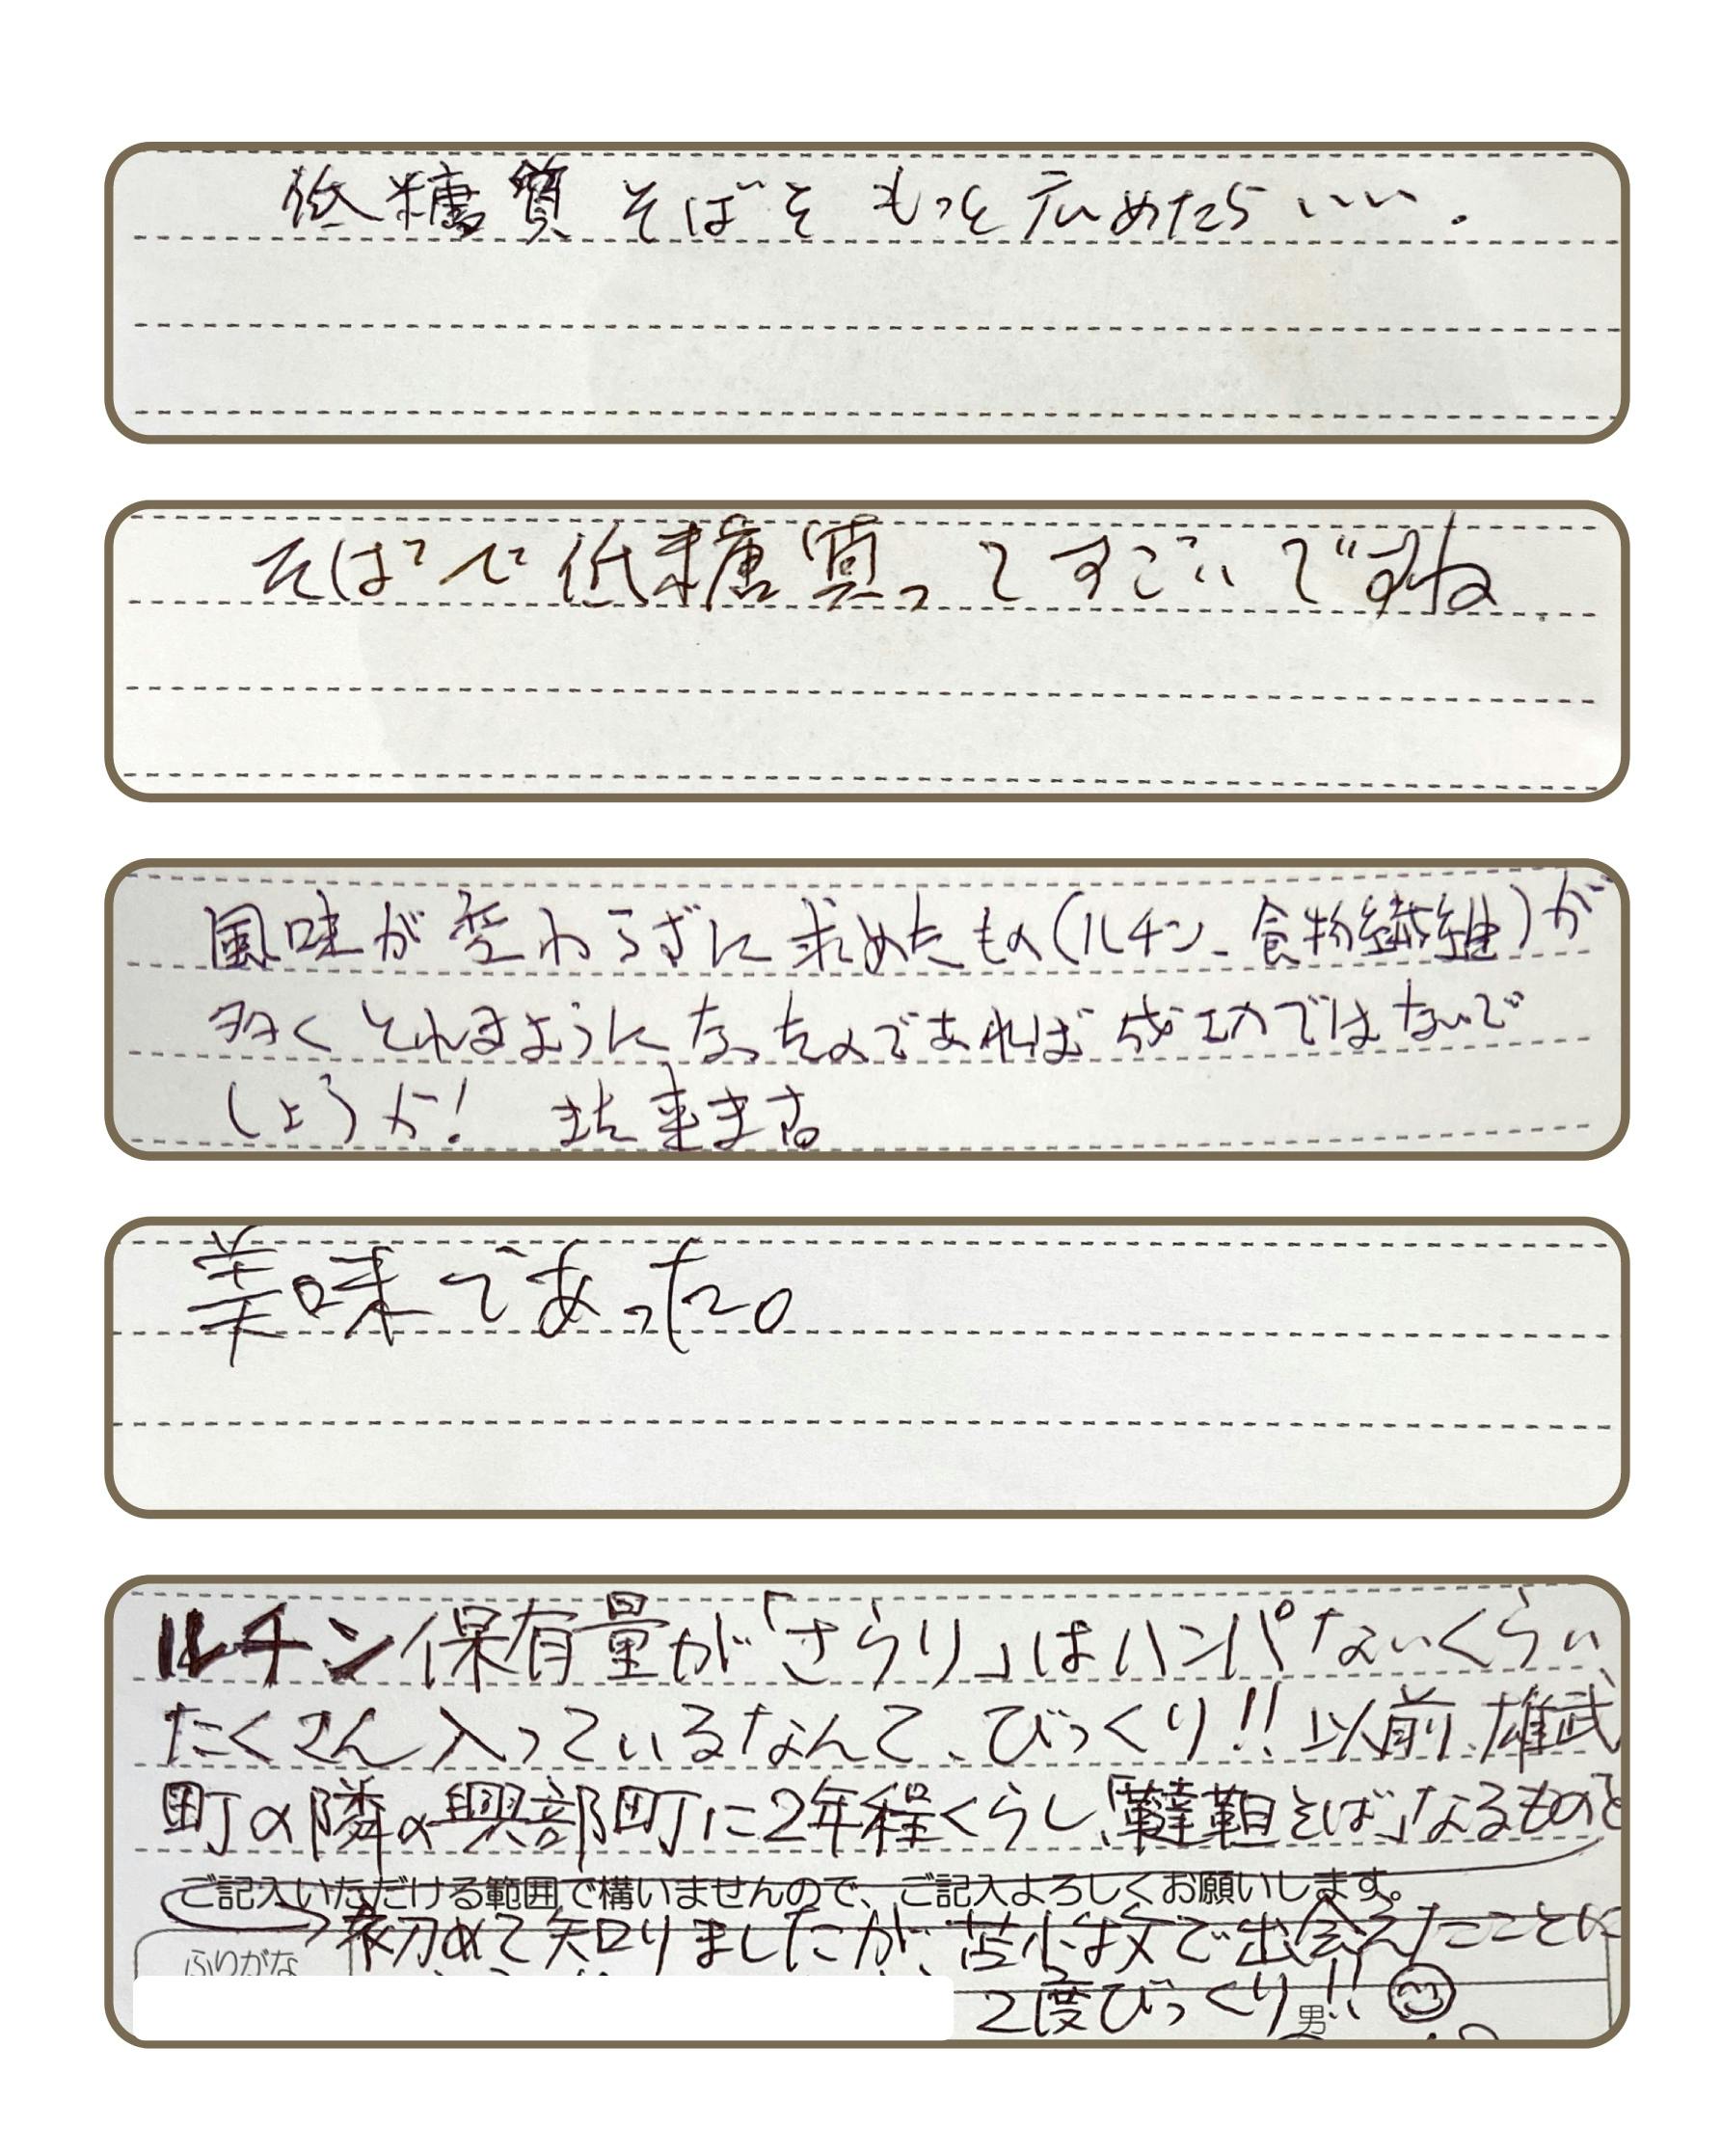 低糖質そばをもっと広めたらいい。
そばで低糖質ってすごいですね
風味が変わらずに求めたもの(ルチン、食物繊維)が
多くとれるようになったのであれば成功ではないで
しょうか! また来ます。
美味であった。
ルチン保有量が「さらり」はハンパないくらい、
たくさん入っているなんて、びっくり!! 以前、雄武
町の隣の興部町に2年程くらし、「韃靼そば」なるものを
ご記入いただける範囲で構いませんので、ご記入よろしくお願いします。
初めて知りましたが、苫小牧で出会えたことに
ふりがな
2度びっくり!!
男